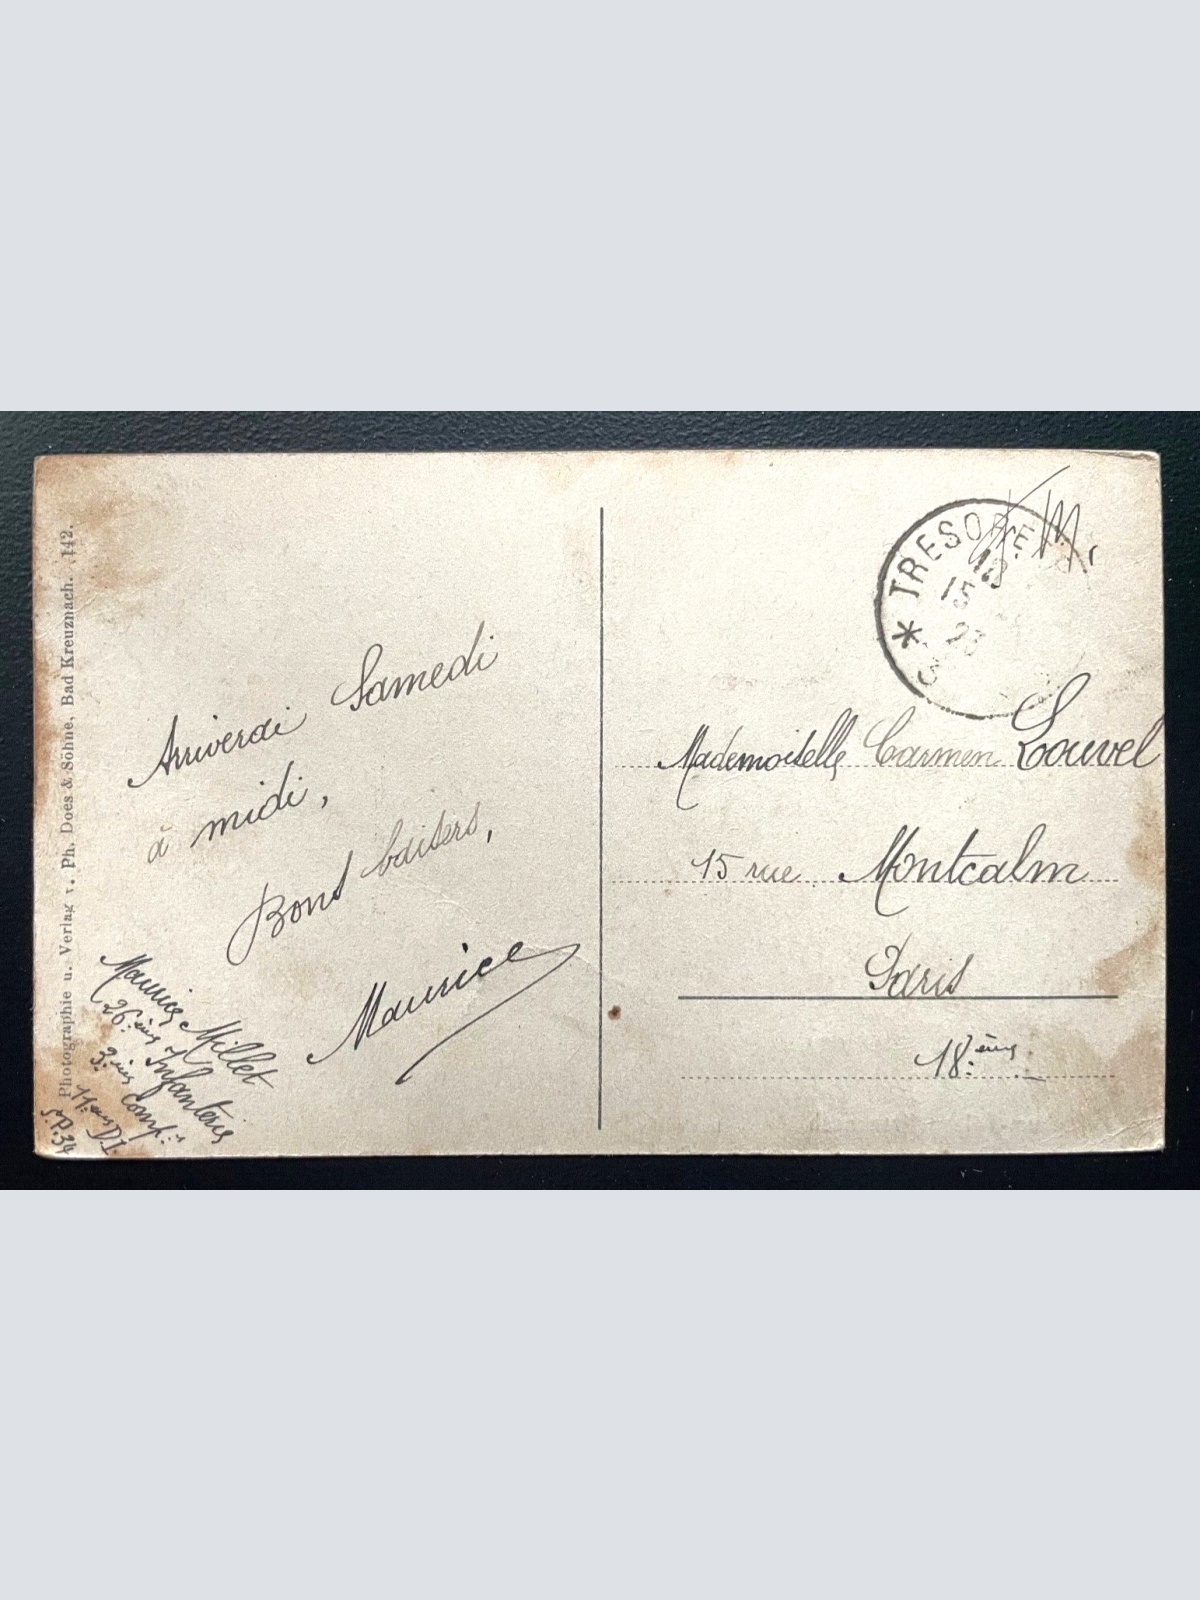 Photographie u. Verlag v. Ph. Does & Söhne, Bad Kreuznach. 142.
Arriverai Samedi
à midi,
Bons baisers,
Maurice
Maurice Millet
26.ème Infanterie
3.ème Comp.ie
11.ème D.I.
S.P.34
TRESOR E
15
23
3
F.M.
Mademoiselle Carmen Louvel
15 rue Montcalm
Paris
18.ème